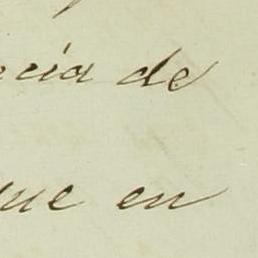 ecia de
que en